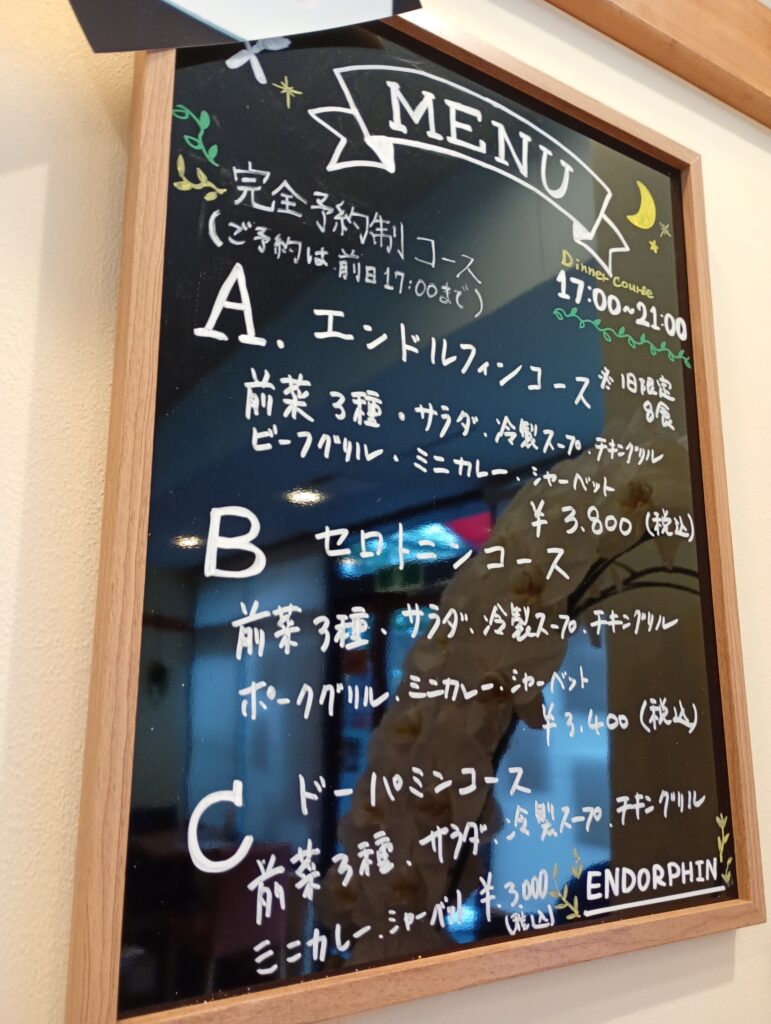 MENU
完全予約制 コース
(ご予約は前日17:00まで)
Dinner Course
17:00~21:00
A. エンドルフィンコース
※1日限定
8食
前菜3種・サラダ・冷製スープ・チキングリル
ビーフグリル・ミニカレー・シャーベット
¥3.800(税込)
B セロトニンコース
前菜3種・サラダ・冷製スープ・チキングリル
ポークグリル・ミニカレー・シャーベット
¥3.400(税込)
C ドーパミンコース
前菜3種・サラダ・冷製スープ・チキングリル
ミニカレー・シャーベット ¥.3000
(税込)
ENDORPHIN